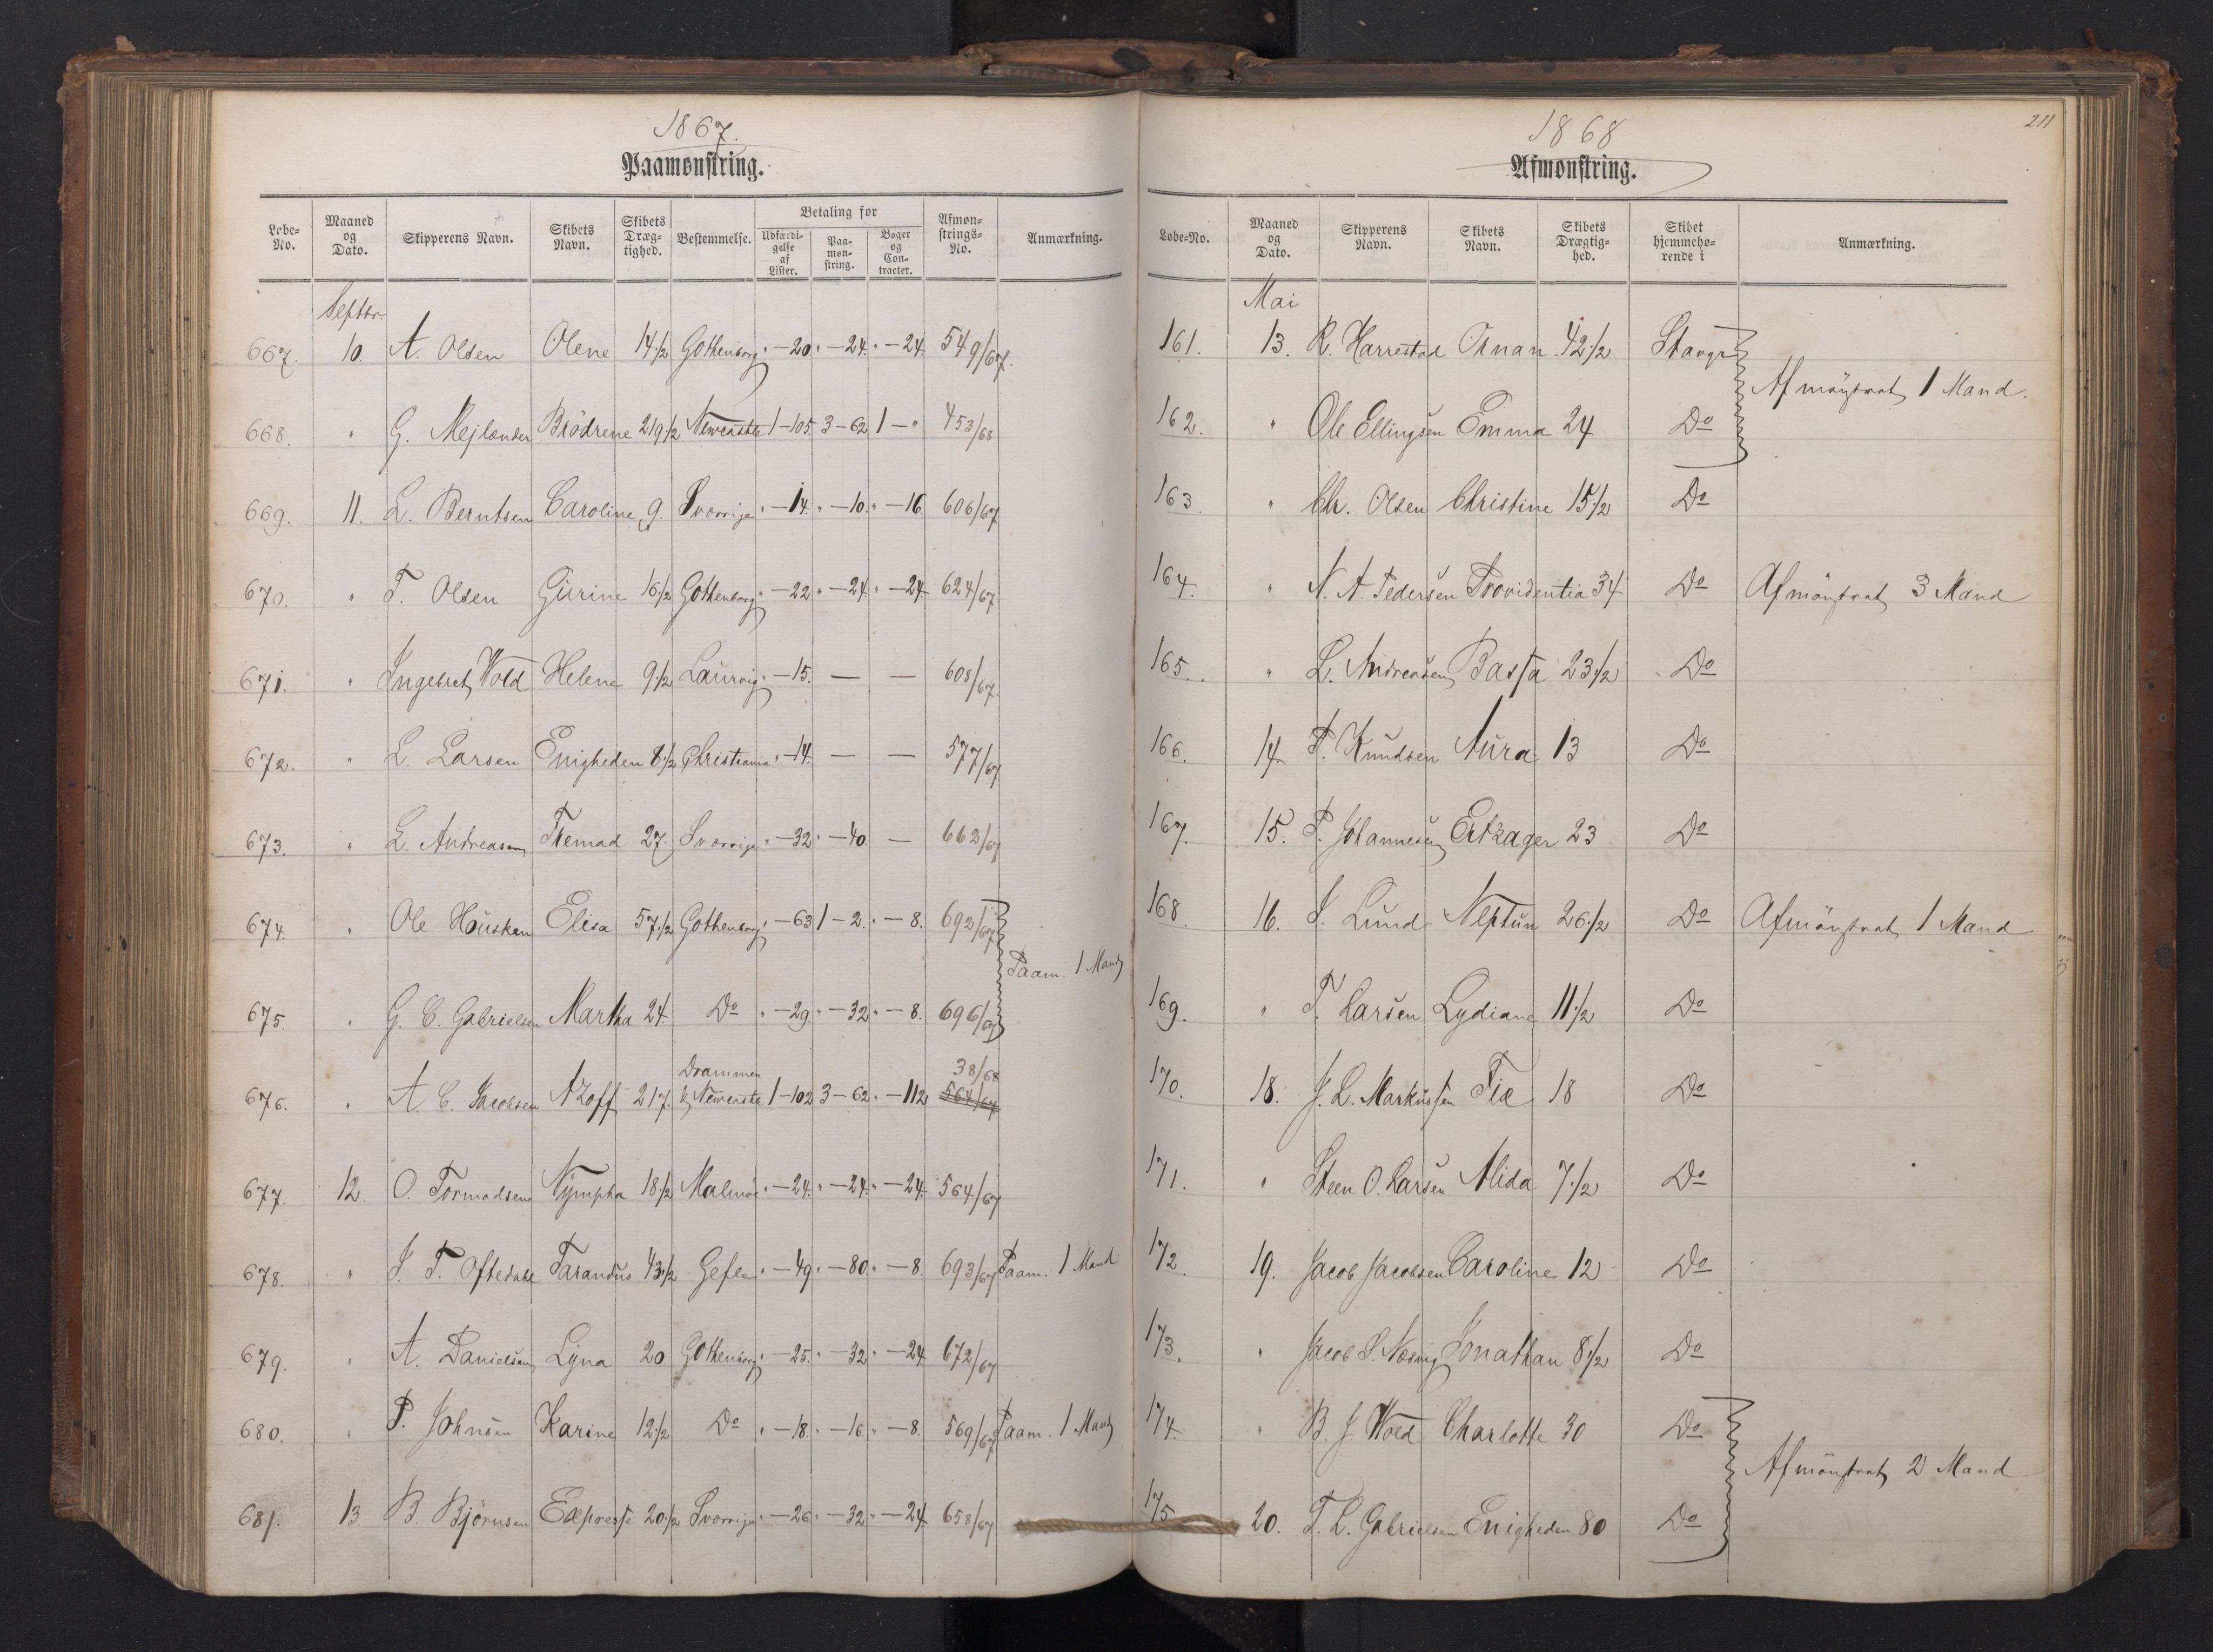 1867.
Paamønstring.
Løbe-No. Maaned og Dato. Skipperens Navn. Skibets Navn. Skibets Dræg-tighed. Bestemmelse. Betaling for Udfærdi-gelse af Lister. Paa-møn-string. Bøger og Con-tracter. Afmøn-strings-No. Anmærkning.
Septbr.
667. 10. A. Olsen Olene 14 1/2 Gothenborg " - 20 " - 24. " - 24. 549/67.
668. " G. Mejlænder Brödrene 219 1/2 Newcastle 1 - 105. 3 - 62 1 - " 453/68
669. 11. L. Berntsen Caroline 9. Sverrige " - 14. " - 10. " - 16 606/67
670. " T. Olsen Gurine 16 1/2 Gothenborg " - 22 " - 24. " - 24. 624/67.
671. " Ingebret Wold Helene 9 1/2 Laurvig " - 15. — — 608/67.
672. " L. Larsen Enigheden 8 1/2 Christiania " - 14. — — 577/67
673. " L. Andreasen 27. Sverrige " - 32 " - 40. — 663/67
674. " Ole Housken Elisa 57 1/2 Gothenborg " - 63 1 - 2. " - 8. 692/67
Paam. 1 Mand
675. " G. C. Gabrielsen Martha 24. Do " - 29. " - 32 " - 8. 696/67
676. " A. C. Jacobsen Azoff 217. Drammen & Newcastle 1 - 102 3 - 62 " - 112 38/68 564/67
677. 12. O. Tormodsen Nympha 18 1/2 Malmöe " - 24. " - 24. " - 24. 564/67
678. " J. T. Oftedahl Tarandus 43 1/2 Gefle " - 49. " - 80. " - 8. 693/67 Paam. 1 Mand
679. " A. Danielsen Lyna 20 Gothenborg " - 25. " - 32 " - 24 672/67
680. " P. Johnsen Karine 12 1/2 Do " - 18. " - 16. " - 8. 569/67 Paam. 1 Mand
681. 13. B. Björnsen Expresse 20 1/2 Sverrige " - 26. " - 32 " - 24 658/67
211
1868
Afmønstring.
Løbe-No. Maaned og Dato. Skipperens Navn. Skibets Navn. Skibets Drægtig-hed. Skibet hjemmehø-rende i Anmærkning.
Mai
161. 13. R. Harrestad Ornan 42 1/2 Stavgr
Afmönstrat 1 Mand.
162. " Ole Ellingsen Emma 24 Do
163. " Chr. Olsen Christine 15 1/2 Do
164. " N. A. Pedersen Providentia 34 Do Afmönstrat 3 Mand
165. " L. Andreasen 23 1/2 Do
166. 14. T. Knudsen Aura 13 Do
167. 15. P. Johannesen 23 Do
168. 16. J. Lund Neptun 26 1/2 Do Afmönstrat 1 Mand
169. " T. Larsen Lydiane 11 1/2 Do
170. 18. J. L. Markussen 18 Do
171. " Steen O. Larsen Alida 7 1/2 Do
172. 19. Jacob Jacobsen Caroline 12 Do
173. " Jacob S. Nesvig Jonathan 8 1/2 Do
174. " B. J. Wold Charlotte 30 Do
Afmönstrat 2 Mand
175. 20. T. L. Gabrielsen Enigheden 80 Do